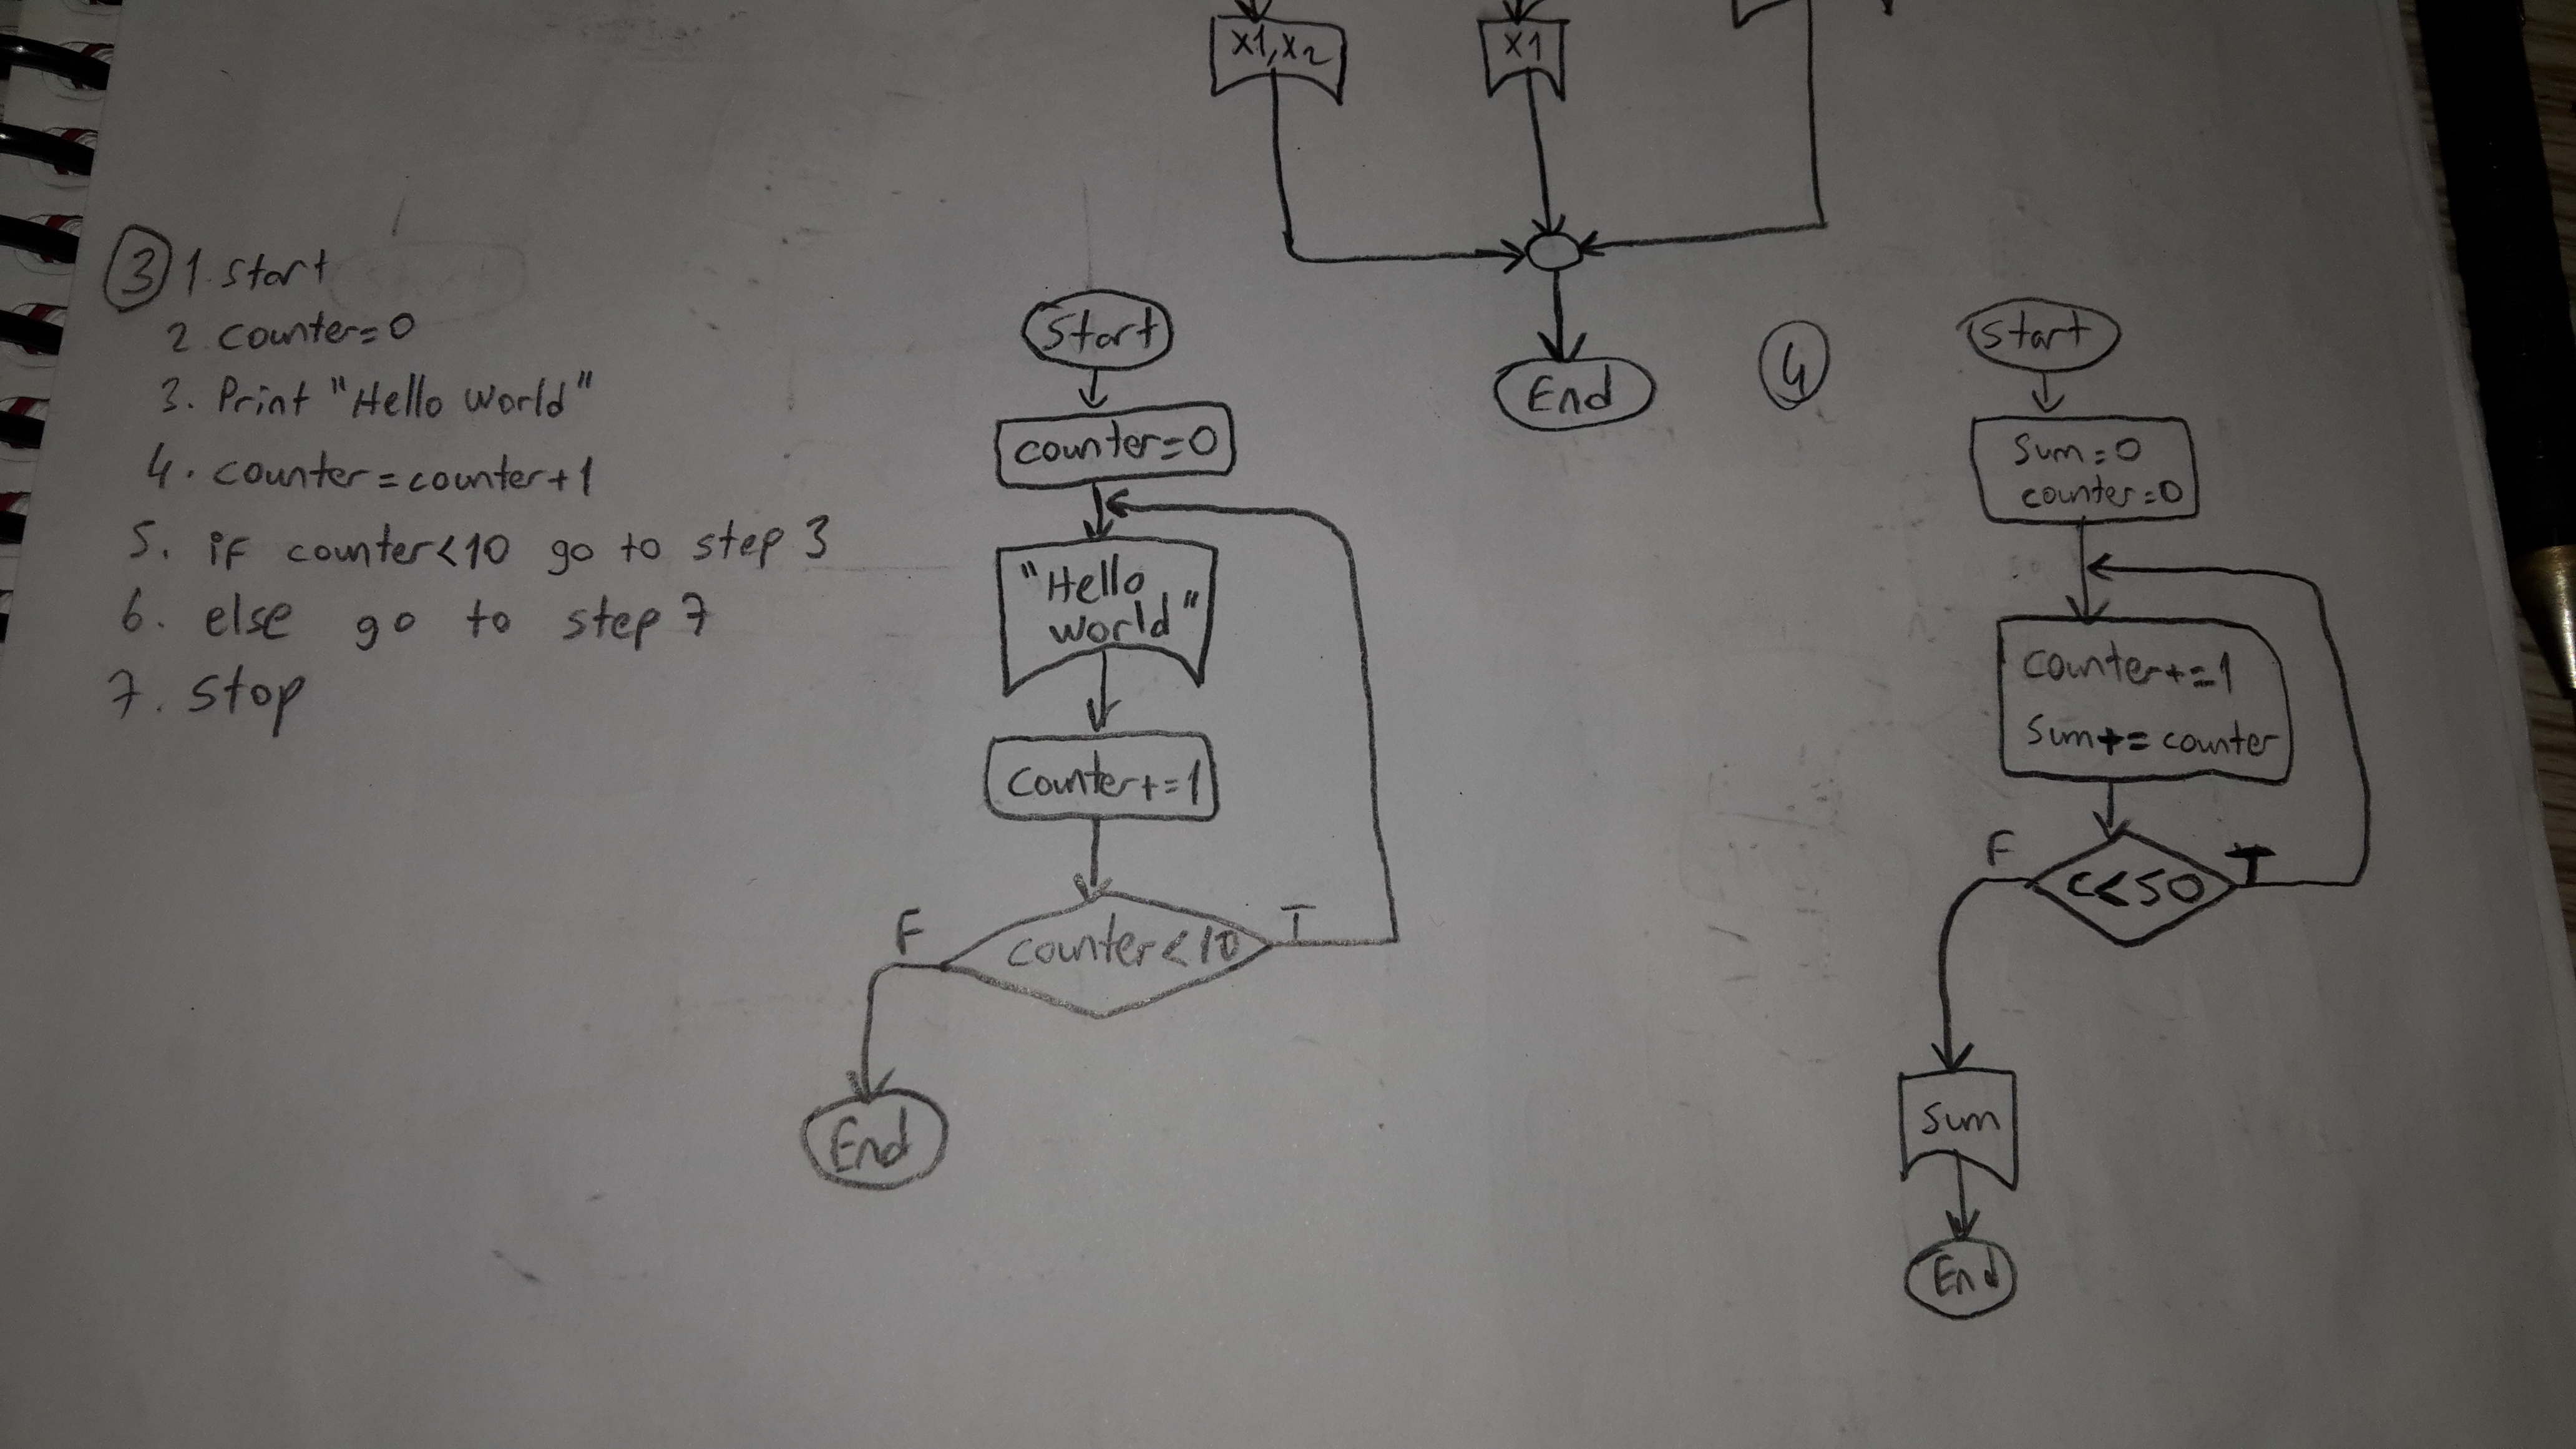 x1,x2
x1
End
3
1. start
2. counter=0
3. Print "Hello World"
4. counter=counter+1
5. if counter<10 go to step 3
6. else go to step 7
7. stop
Start
counter=0
"Hello
world"
counter+=1
counter<10
F
T
End
4
Start
sum=0
counter=0
counter+=1
sum+=counter
c<50
F
T
sum
End